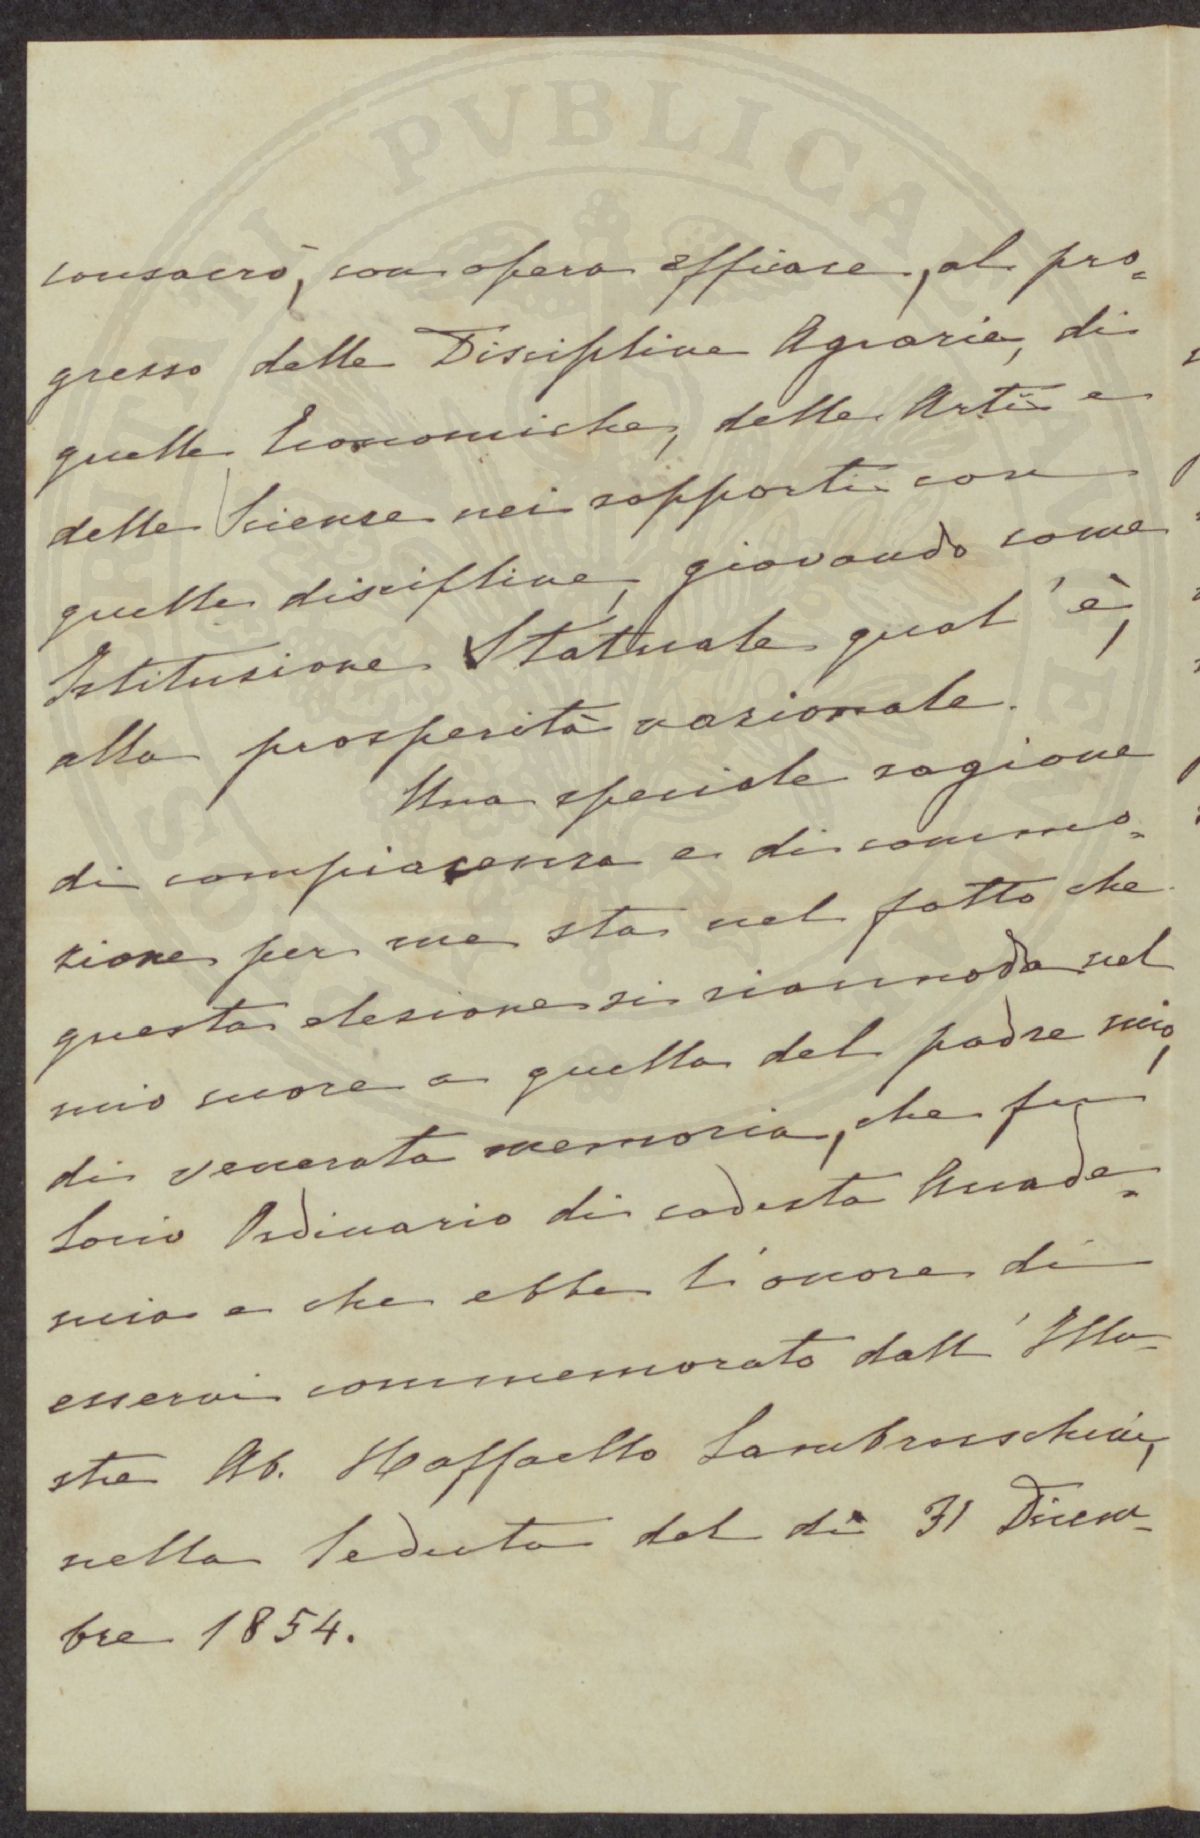 consacrò, con opera efficace, al pro=
gresso delle Discipline Agrarie, di
quelle Economiche, delle Arti e
delle Scienze nei rapporti con
quelle discipline, giovando come
Istituzione Statuale qual'è,
alla prosperità nazionale.
Una speciale ragione
di compiacenza e di commo=
zione per me sta nel fatto che
questa elezione si riannoda nel
mio cuore a quella del padre mio,
di venerata memoria, che fu
Socio Ordinario di codesta Accade=
mia e che ebbe l'onore di
esservi commemorato dall'Illu-
stre Ab. Raffaello Lambruschini,
nella Seduta del dì 31 Dicem-
bre 1854.
PVBLICAE